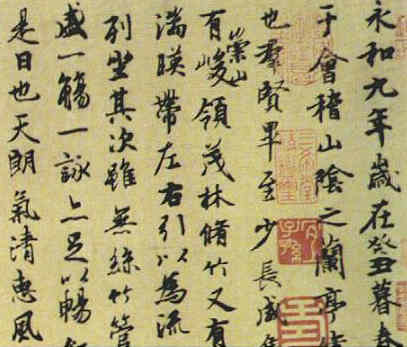 永和九年歲在癸丑暮春
于會稽山陰之蘭亭
也羣賢畢至少長咸
有崇山峻領茂林脩竹又有
湍暎帶左右引以為流
列坐其次雖無絲竹管
盛一觴一詠亦足以暢
是日也天朗氣清惠風